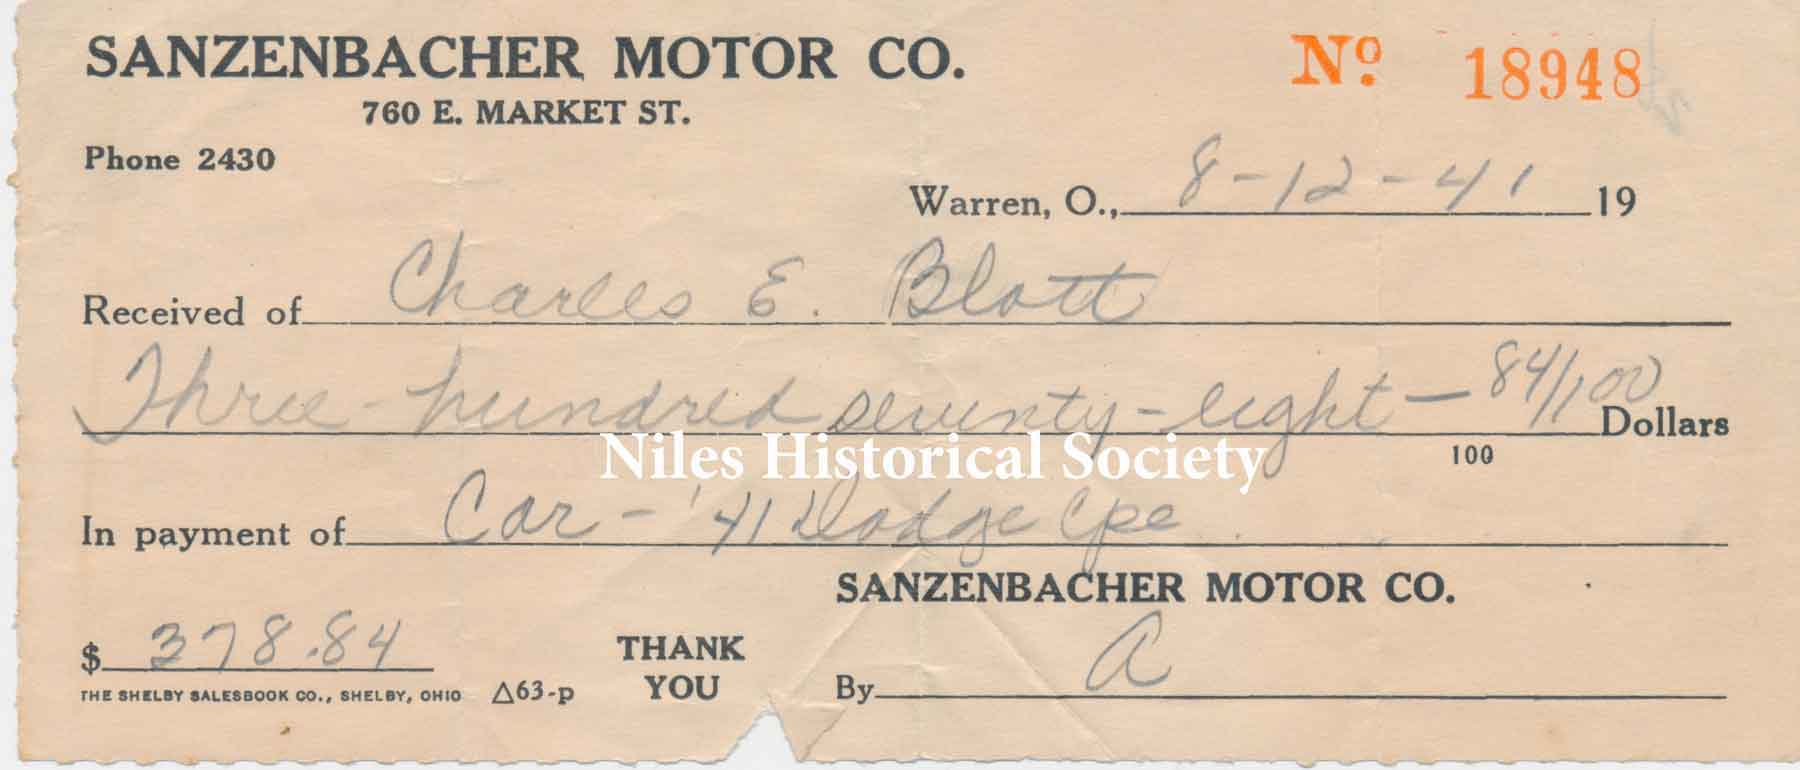 SANZENBACHER MOTOR CO. No. 18948
760 E. MARKET ST.
Phone 2430
Warren, O., 8-12-41 19
Received of Charles E. Blott
Three hundred seventy-eight — 84/100 Dollars
100
Niles Historical Society
In payment of Car - '41 Dodge Cpe
SANZENBACHER MOTOR CO.
$ 378.84 THANK YOU By A
THE SHELBY SALESBOOK CO., SHELBY, OHIO △63-p